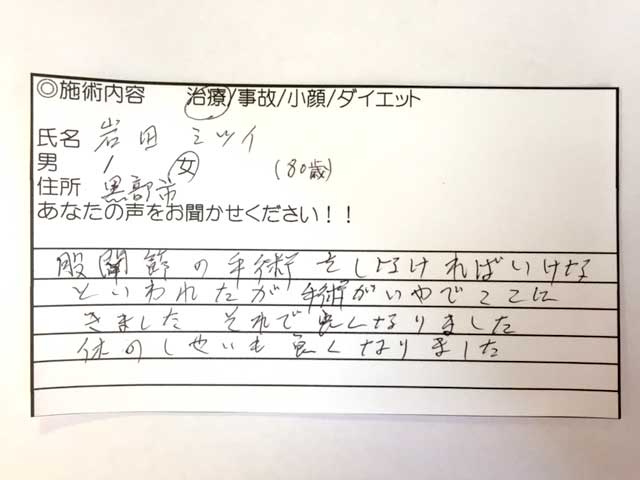 ◎施術内容 治療/事故/小顔/ダイエット
氏名 岩田 ミツイ
男 / 女 (80歳)
住所 黒部市
あなたの声をお聞かせください！！
股関節の手術をしなければいけな
といわれたが手術がいやでここに
きました それで良くなりました
体のしせいも良くなりました